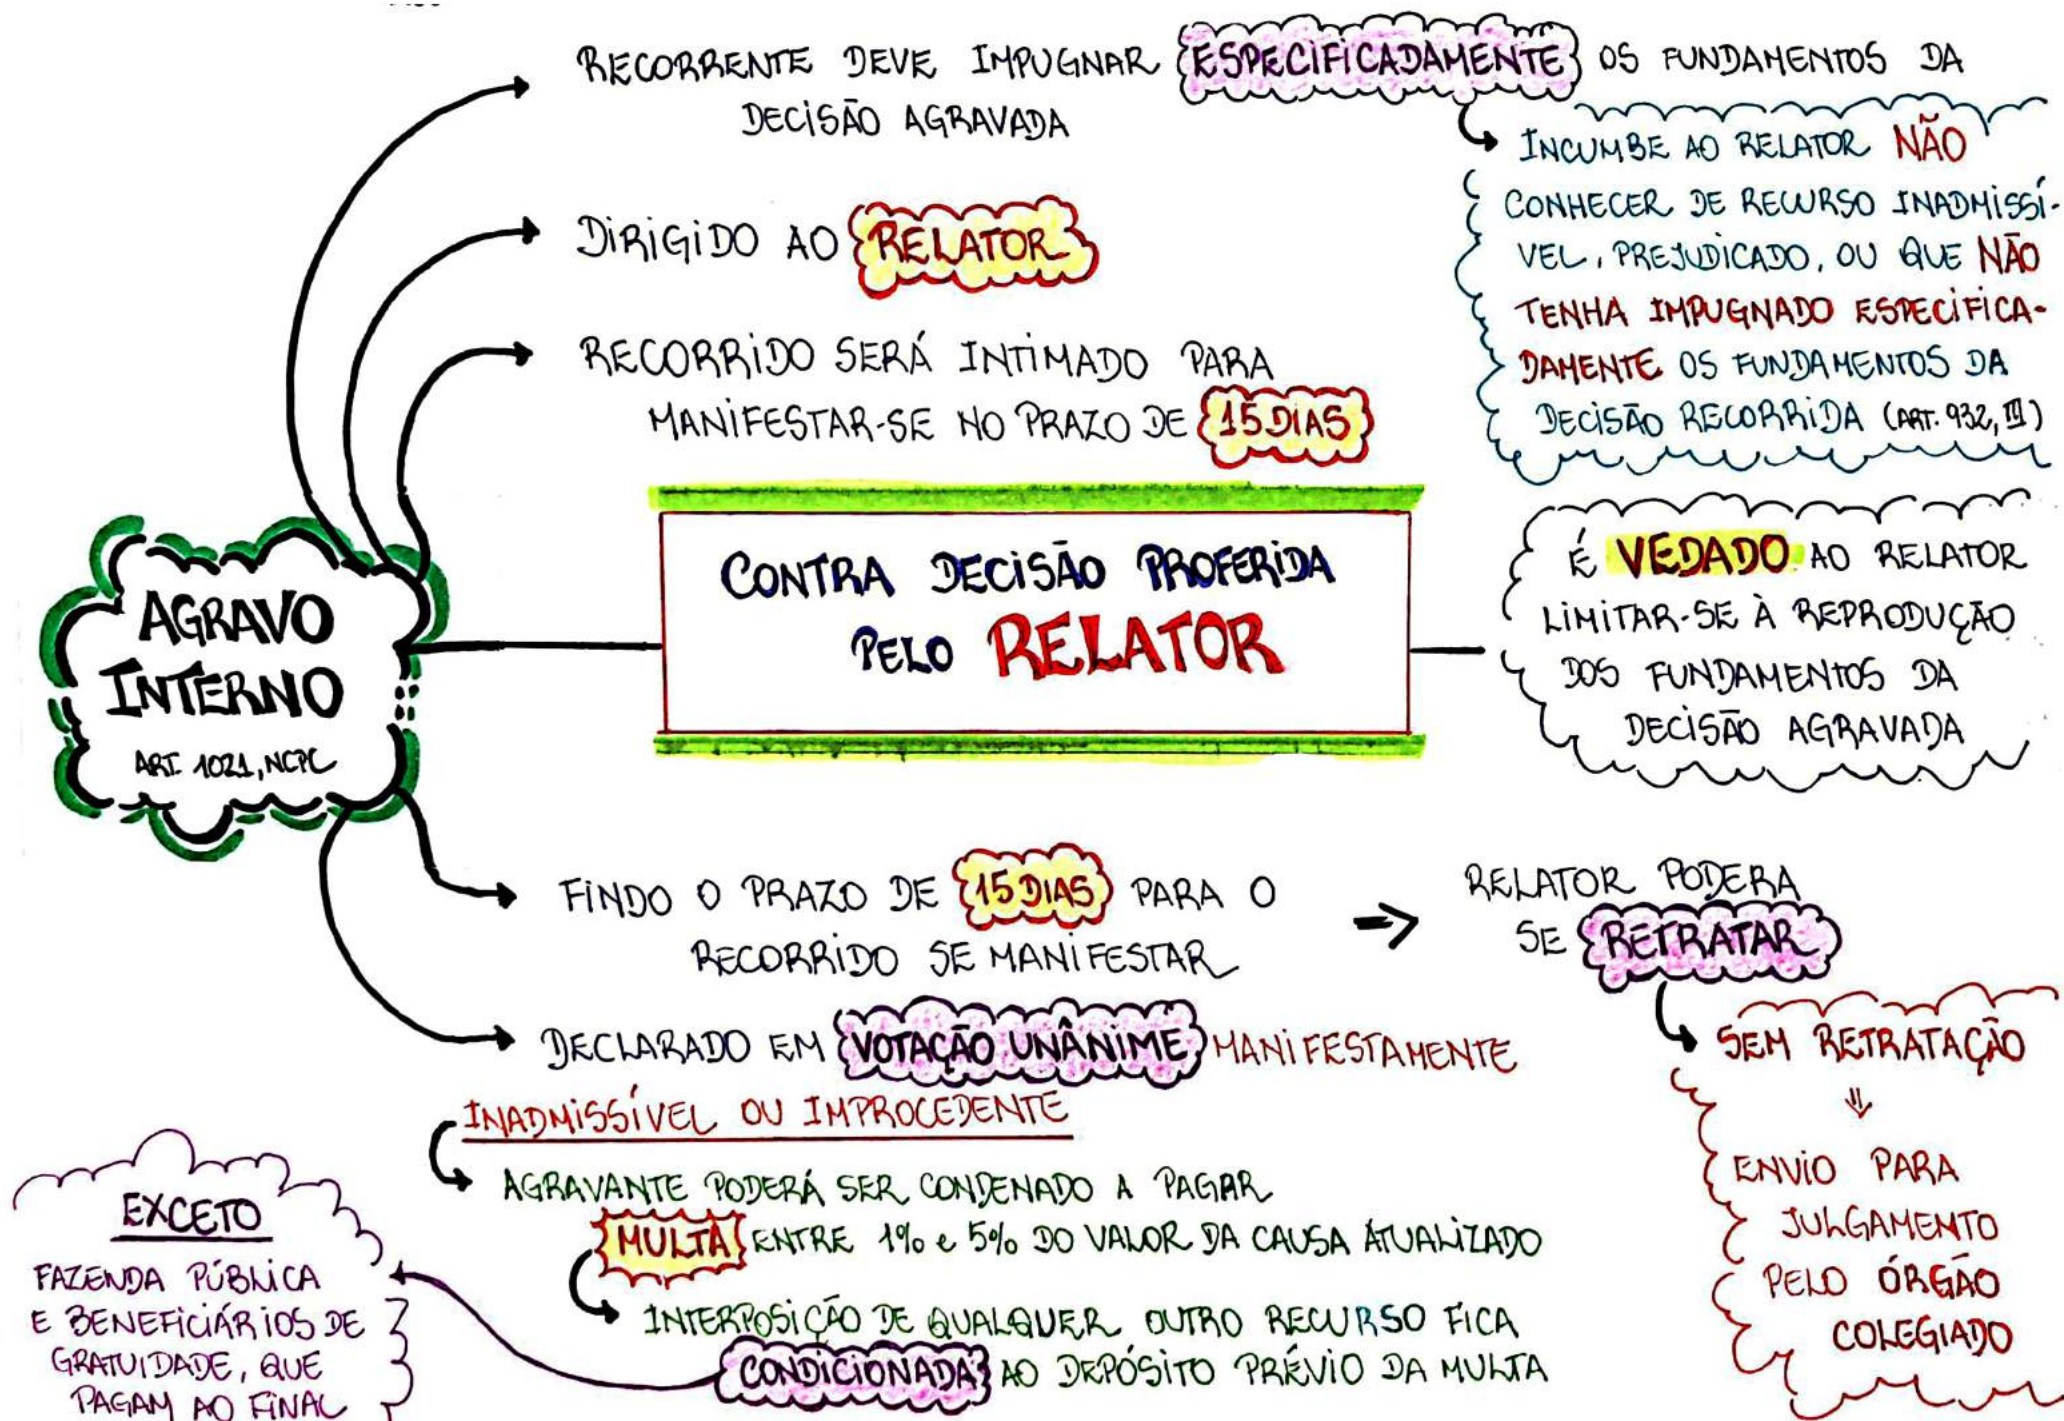 RECORRENTE DEVE IMPUGNAR ESPECIFICADAMENTE OS FUNDAMENTOS DA
DECISÃO AGRAVADA
INCUMBE AO RELATOR NÃO
CONHECER DE RECURSO INADMISSÍ-
VEL, PREJUDICADO, OU QUE NÃO
TENHA IMPUGNADO ESPECIFICA-
DAMENTE OS FUNDAMENTOS DA
DECISÃO RECORRIDA (ART. 932, III)
DIRIGIDO AO RELATOR
RECORRIDO SERÁ INTIMADO PARA
MANIFESTAR-SE NO PRAZO DE 15 DIAS
AGRAVO
INTERNO
ART. 1021, NCPC
CONTRA DECISÃO PROFERIDA
PELO RELATOR
É VEDADO AO RELATOR
LIMITAR-SE À REPRODUÇÃO
DOS FUNDAMENTOS DA
DECISÃO AGRAVADA
FINDO O PRAZO DE 15 DIAS PARA O
RECORRIDO SE MANIFESTAR
RELATOR PODERA
SE RETRATAR
SEM RETRATAÇÃO
ENVIO PARA
JULGAMENTO
PELO ÓRGÃO
COLEGIADO
DECLARADO EM VOTAÇÃO UNÂNIME MANIFESTAMENTE
INADMISSÍVEL OU IMPROCEDENTE
AGRAVANTE PODERÁ SER CONDENADO A PAGAR
MULTA ENTRE 1% e 5% DO VALOR DA CAUSA ATUALIZADO
INTERPOSIÇÃO DE QUALQUER OUTRO RECURSO FICA
CONDICIONADA AO DEPÓSITO PRÉVIO DA MULTA
EXCETO
FAZENDA PÚBLICA
E BENEFICIÁRIOS DE
GRATUIDADE, QUE
PAGAM AO FINAL